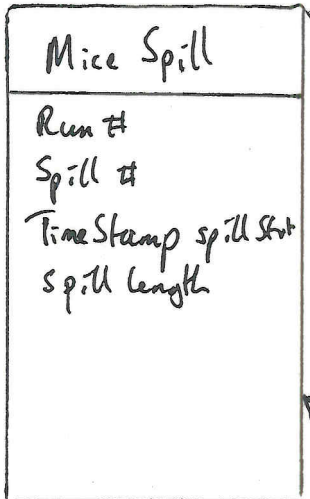 Mice Spill
Run #
Spill #
TimeStamp spill Strt
spill length